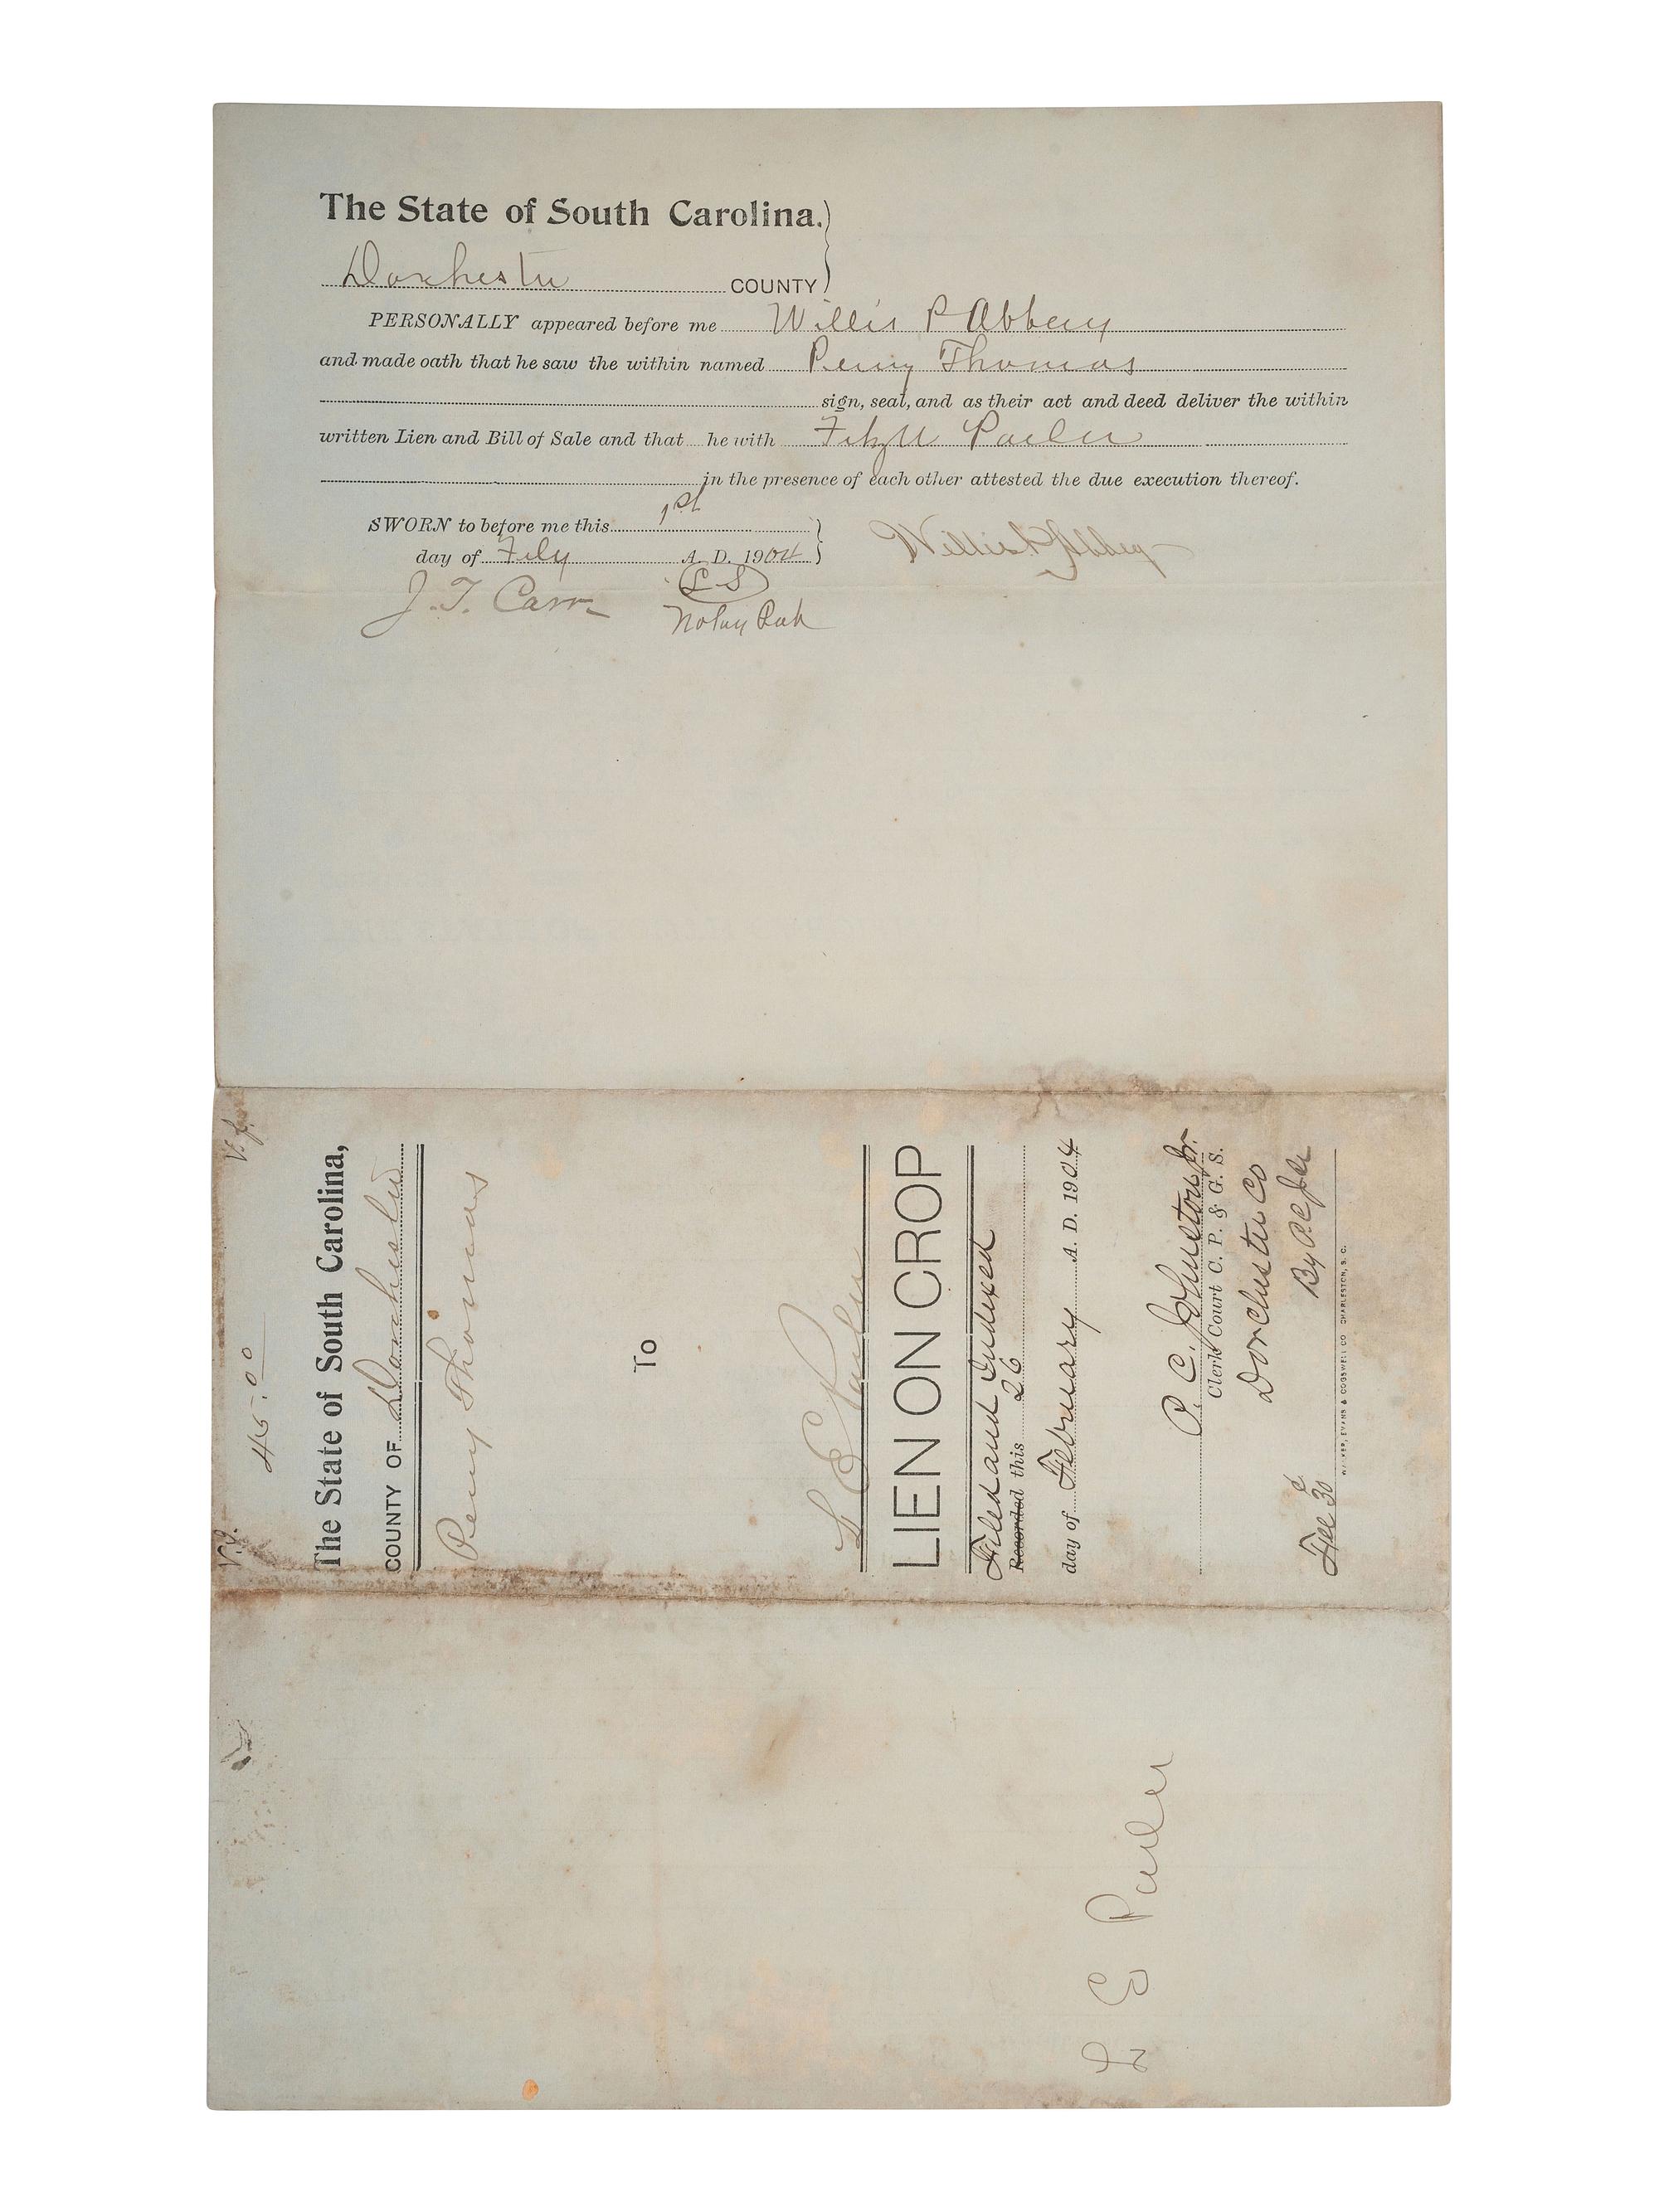 The State of South Carolina.
Dorchester COUNTY
PERSONALLY appeared before me Willis P Abbery
and made oath that he saw the within named Perry Thomas
sign, seal, and as their act and deed deliver the within
written Lien and Bill of Sale and that he with Parler
in the presence of each other attested the due execution thereof.
SWORN to before me this 1st
day of Feby A. D. 1904
Willis P
J. T. Carr
L S
Notary Pub
45.00
The State of South Carolina,
COUNTY OF Dorchester
Perry Thomas
To
L E Parler
LIEN ON CROP
Filed and Indexed
Recorded this 26
day of February A. D. 1904
P. C. Johnston Jr.
Clerk Court C. P. & G. S.
Dorchester Co
By
Fee 30c
WALKER, EVANS & COGSWELL CO. CHARLESTON, S. C.
L E Parler